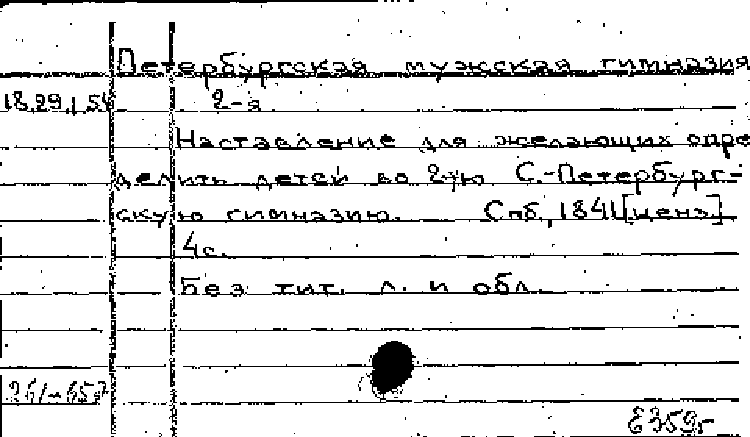 Петербургская мужская гимназия
18.29.1.54 2-я
Наставление для желающих опре
делить детей во 2ую С.-Петербург-
скую гимназию. Спб, 1841 [ценз]
4с.
Без тит. л. и обл.
Е359г